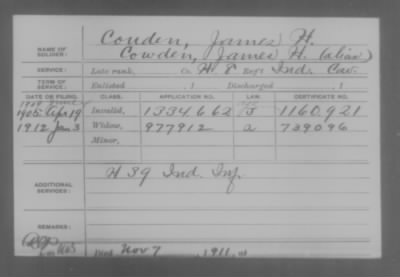 Couden, James H.
NAME OF SOLDIER: Cowden, James H. (alias)
SERVICE: Late rank, Co. H. 8 Reg't Ind. Cav.
TERM OF SERVICE: Enlisted , 1 Discharged , 1
DATE OF FILING. CLASS. APPLICATION NO. LAW. CERTIFICATE NO.
1905 Apr 19 Invalid, 1334662 1160.921
1912 Jan 3 Widow, 977912 a 739096
Minor,
ADDITIONAL SERVICES: H 39 Ind. Inf.
REMARKS:
Died Nov 7 1911,